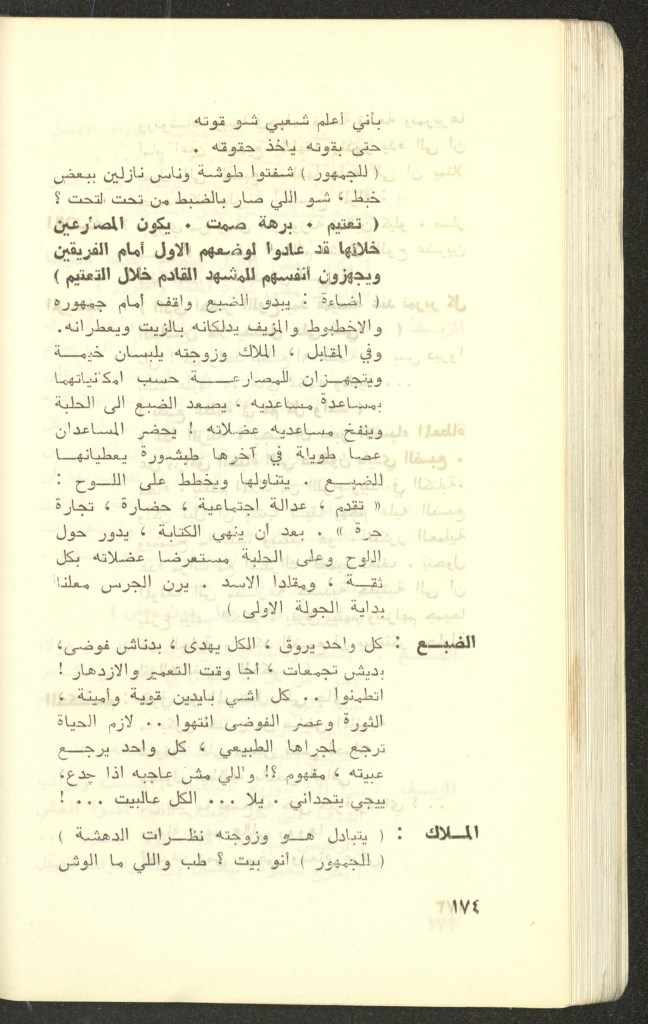 بأني أعلم شعبي شو قوته
حتى بقوته ياخذ حقوقه .
( للجمهور ) شفتوا طوشة وناس نازلين ببعض
خبط ، شو اللي صار بالضبط من تحت لتحت ؟
( تعتيم . برهة صمت . يكون المصارعين
خلالها قد عادوا لوضعهم الاول أمام الفريقين
ويجهزون أنفسهم للمشهد القادم خلال التعتيم )
( اضاءة : يبدو الضبع واقف أمام جمهوره
والاخطبوط والمزيف يدلكانه بالزيت ويعطرانه.
وفي المقابل ، الملاك وزوجته يلبسان خيمة
ويتجهزان للمصارعة حسب امكانياتهما
بمساعدة مساعديه ، يصعد الضبع الى الحلبة
وينفخ مساعديه عضلاته ! يحضر المساعدان
عصا طويلة في آخرها طبشورة يعطيانها
للضبع . يتناولها ويخطط على اللوح :
« تقدم ، عدالة اجتماعية ، حضارة ، تجارة
حرة » . بعد أن ينهي الكتابة ، يدور حول
اللوح وعلى الحلبة مستعرضا عضلاته بكل
ثقة ، ومقلدا الاسد . يرن الجرس معلنا
بداية الجولة الاولى )
الضبع : كل واحد يروق ، الكل يهدى ، بدناش فوضى،
بديش تجمعات ، أجا وقت التعمير والازدهار !
اتطمنوا .. كل اشي بايدين قوية وأمينة ،
الثورة وعصر الفوضى انتهوا .. لازم الحياة
ترجع لمجراها الطبيعي ، كل واحد يرجع
عبيته ، مفهوم ؟! واللي مش عاجبه اذا جدع،
ييجي يتحداني . يلا ... الكل عالبيت ... !
الملاك : ( يتبادل هو وزوجته نظرات الدهشة )
( للجمهور ) أنو بيت ؟ طب واللي ما الوش
١٧٤